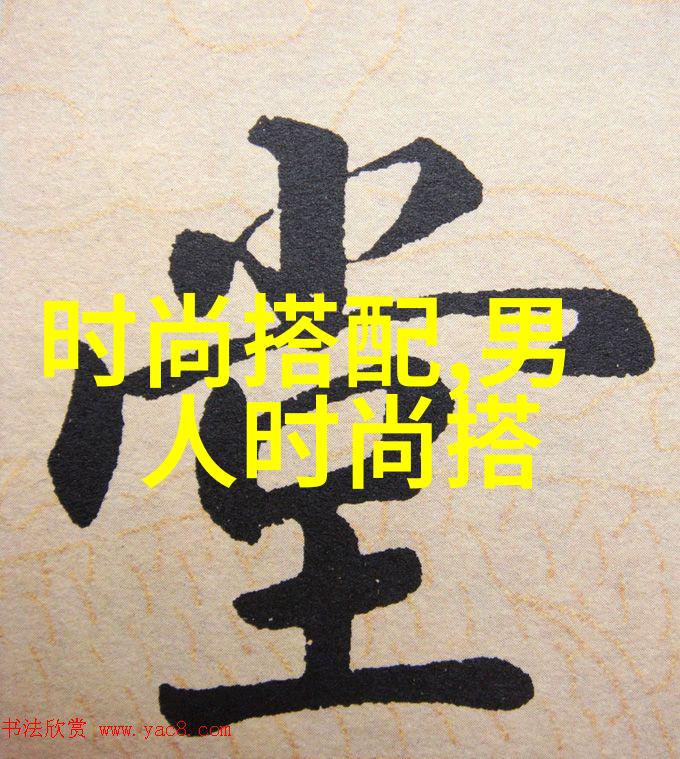 堂
时尚搭配,男
人时尚搭
书法欣赏 www.yac8.com